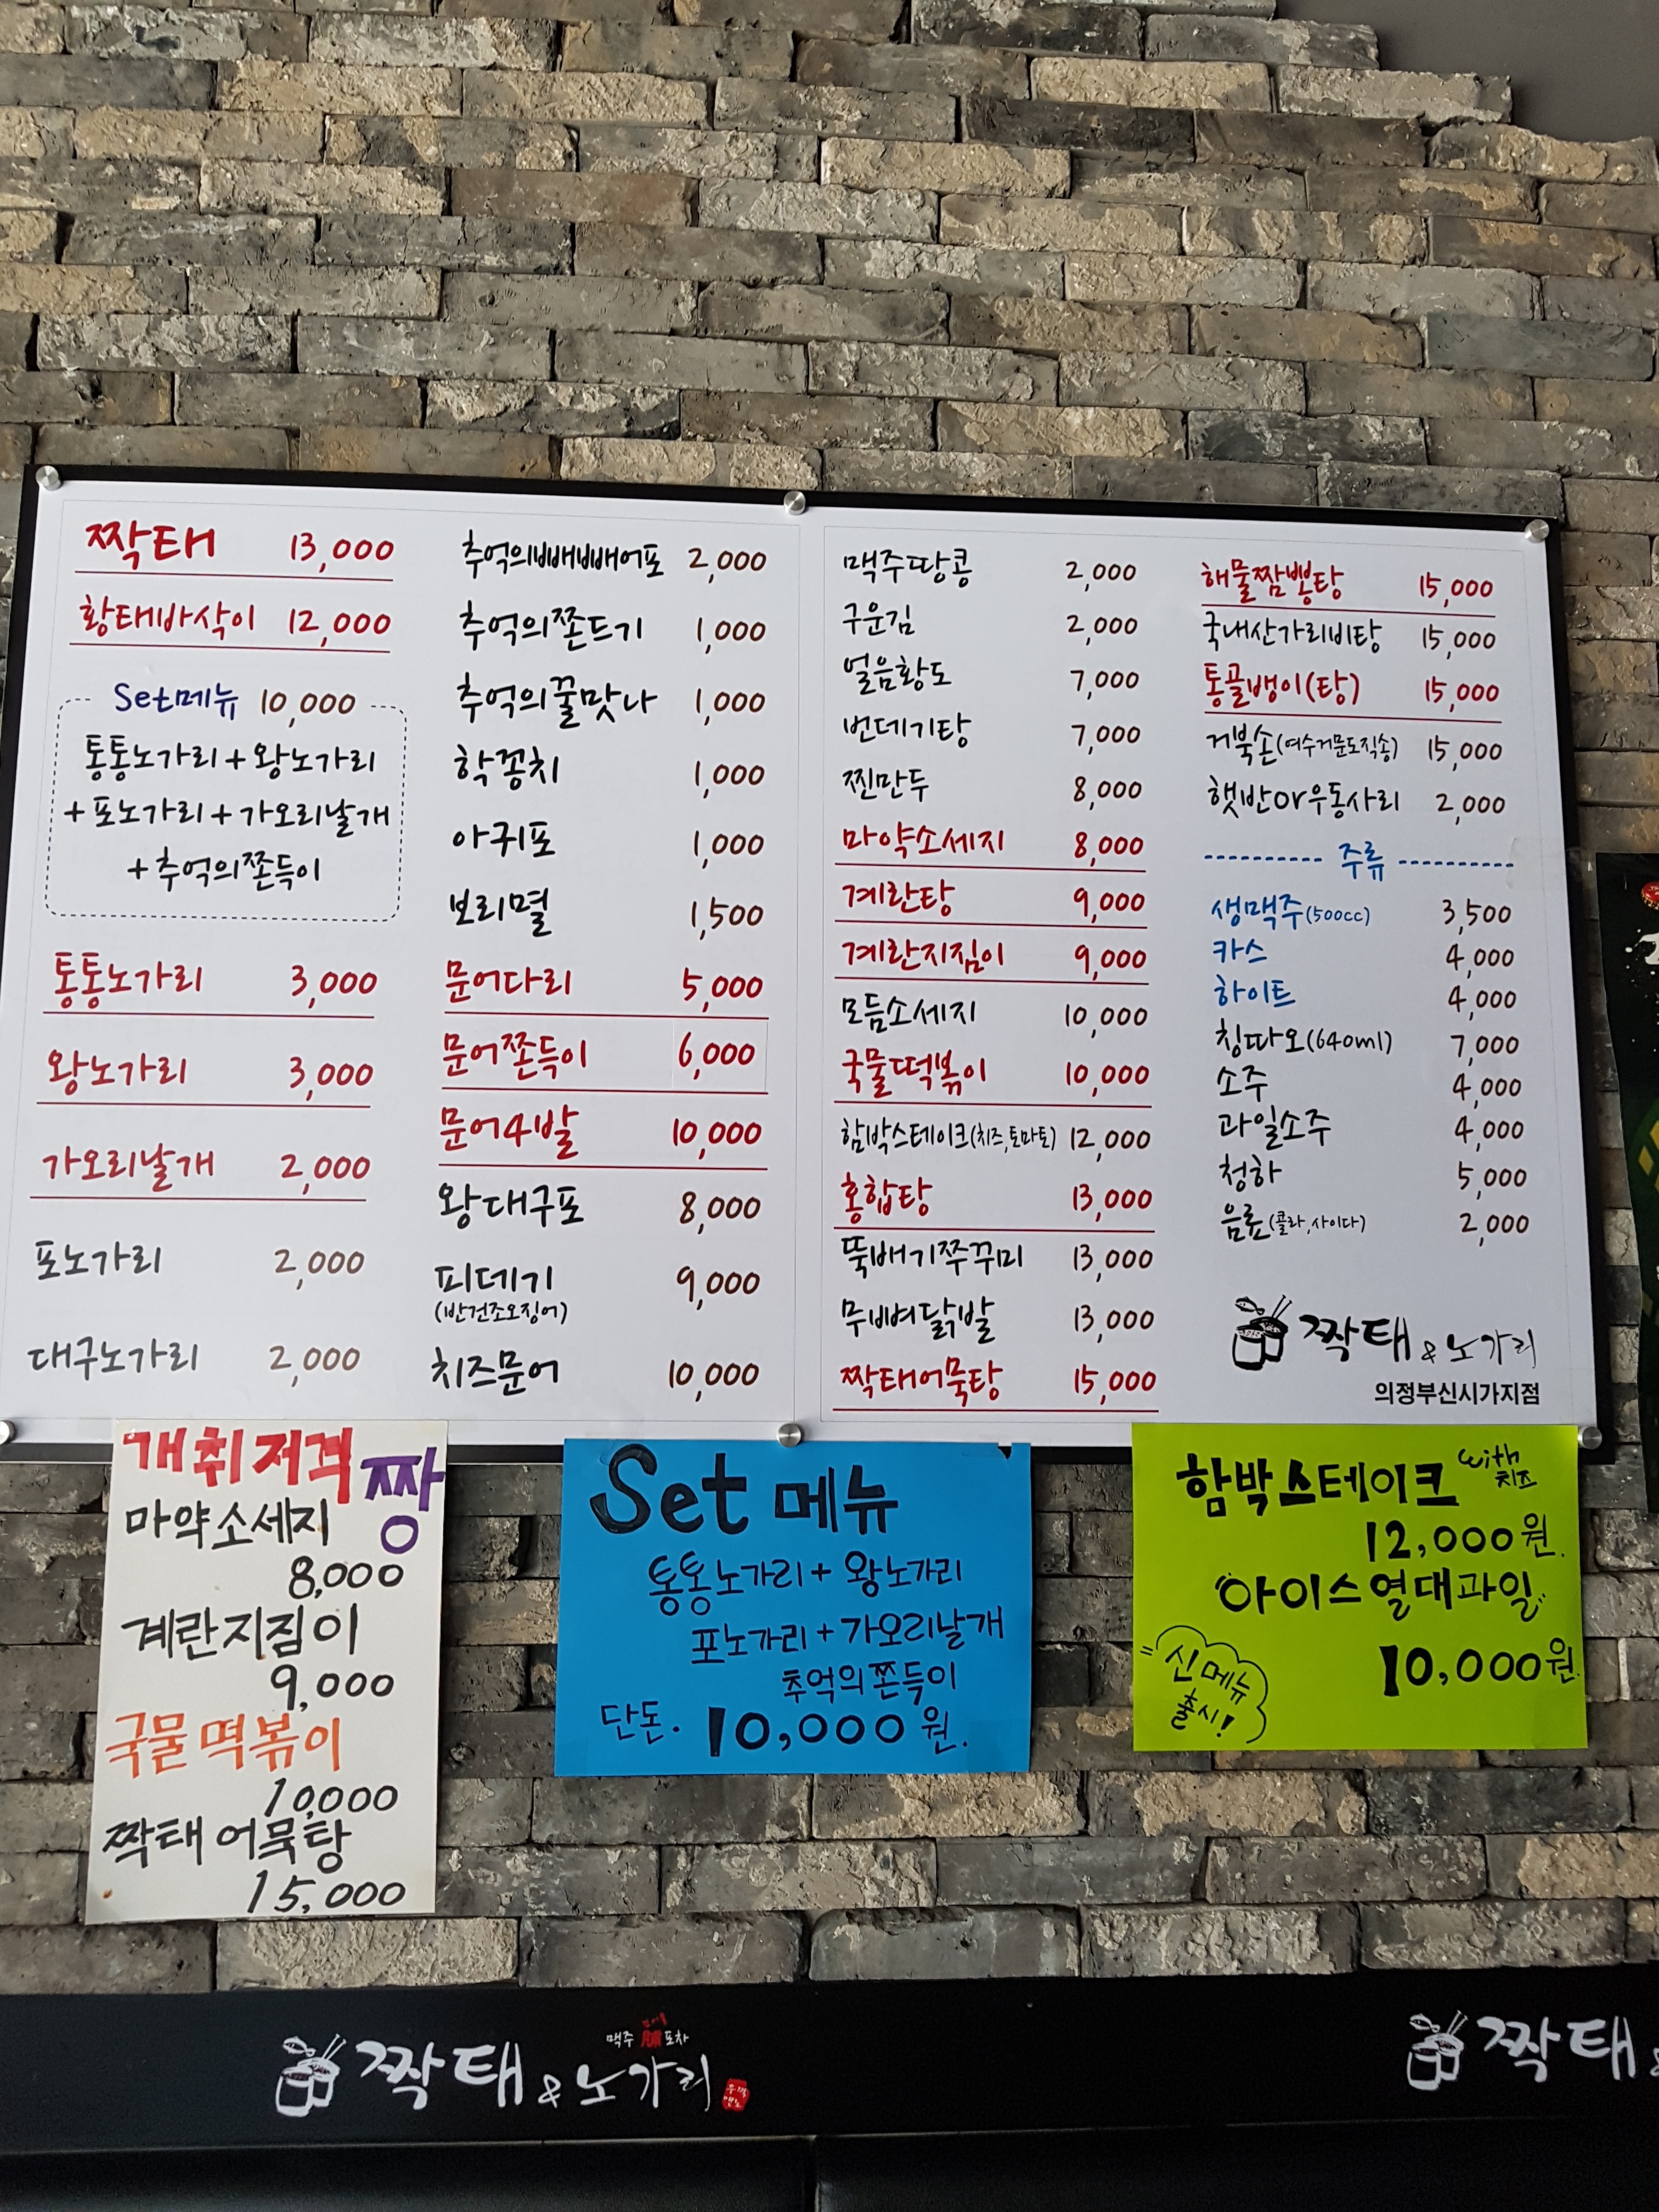 짝태 13,000
황태바삭이 12,000
Set메뉴 10,000
통통노가리+왕노가리
+포노가리+가오리날개
+추억의쫀득이
통통노가리 3,000
왕노가리 3,000
가오리날개 2,000
포노가리 2,000
대구노가리 2,000
추억의빼빼어포 2,000
추억의쫀드기 1,000
추억의꿀맛나 1,000
학꽁치 1,000
아귀포 1,000
보리멸 1,500
문어다리 5,000
문어쫀득이 6,000
문어4발 10,000
왕대구포 8,000
피데기 9,000
(반건조오징어)
치즈문어 10,000
맥주땅콩 2,000
구운김 2,000
얼음황도 7,000
번데기탕 7,000
찐만두 8,000
마약소세지 8,000
계란탕 9,000
계란지짐이 9,000
모듬소세지 10,000
국물떡볶이 10,000
함박스테이크(치즈,토마토) 12,000
홍합탕 13,000
뚝배기쭈꾸미 13,000
무뼈닭발 13,000
짝태어묵탕 15,000
해물짬뽕탕 15,000
국내산가리비탕 15,000
통골뱅이(탕) 15,000
거북손(여수거문도직송) 15,000
햇반or우동사리 2,000
주류
생맥주(500cc) 3,500
카스 4,000
하이트 4,000
칭따오(640ml) 7,000
소주 4,000
과일소주 4,000
청하 5,000
음료(콜라,사이다) 2,000
짝태 & 노가리
의정부신시가지점
개취저격 짱
마약소세지
8,000
계란지짐이
9,000
국물떡볶이
10,000
짝태어묵탕
15,000
Set 메뉴
통통노가리+왕노가리
포노가리+가오리날개
추억의쫀득이
단돈. 10,000원.
함박스테이크 with 치즈
12,000원.
아이스열대과일
10,000원.
신메뉴
출시!
맥주 포차
짝태 & 노가리
짝태 &